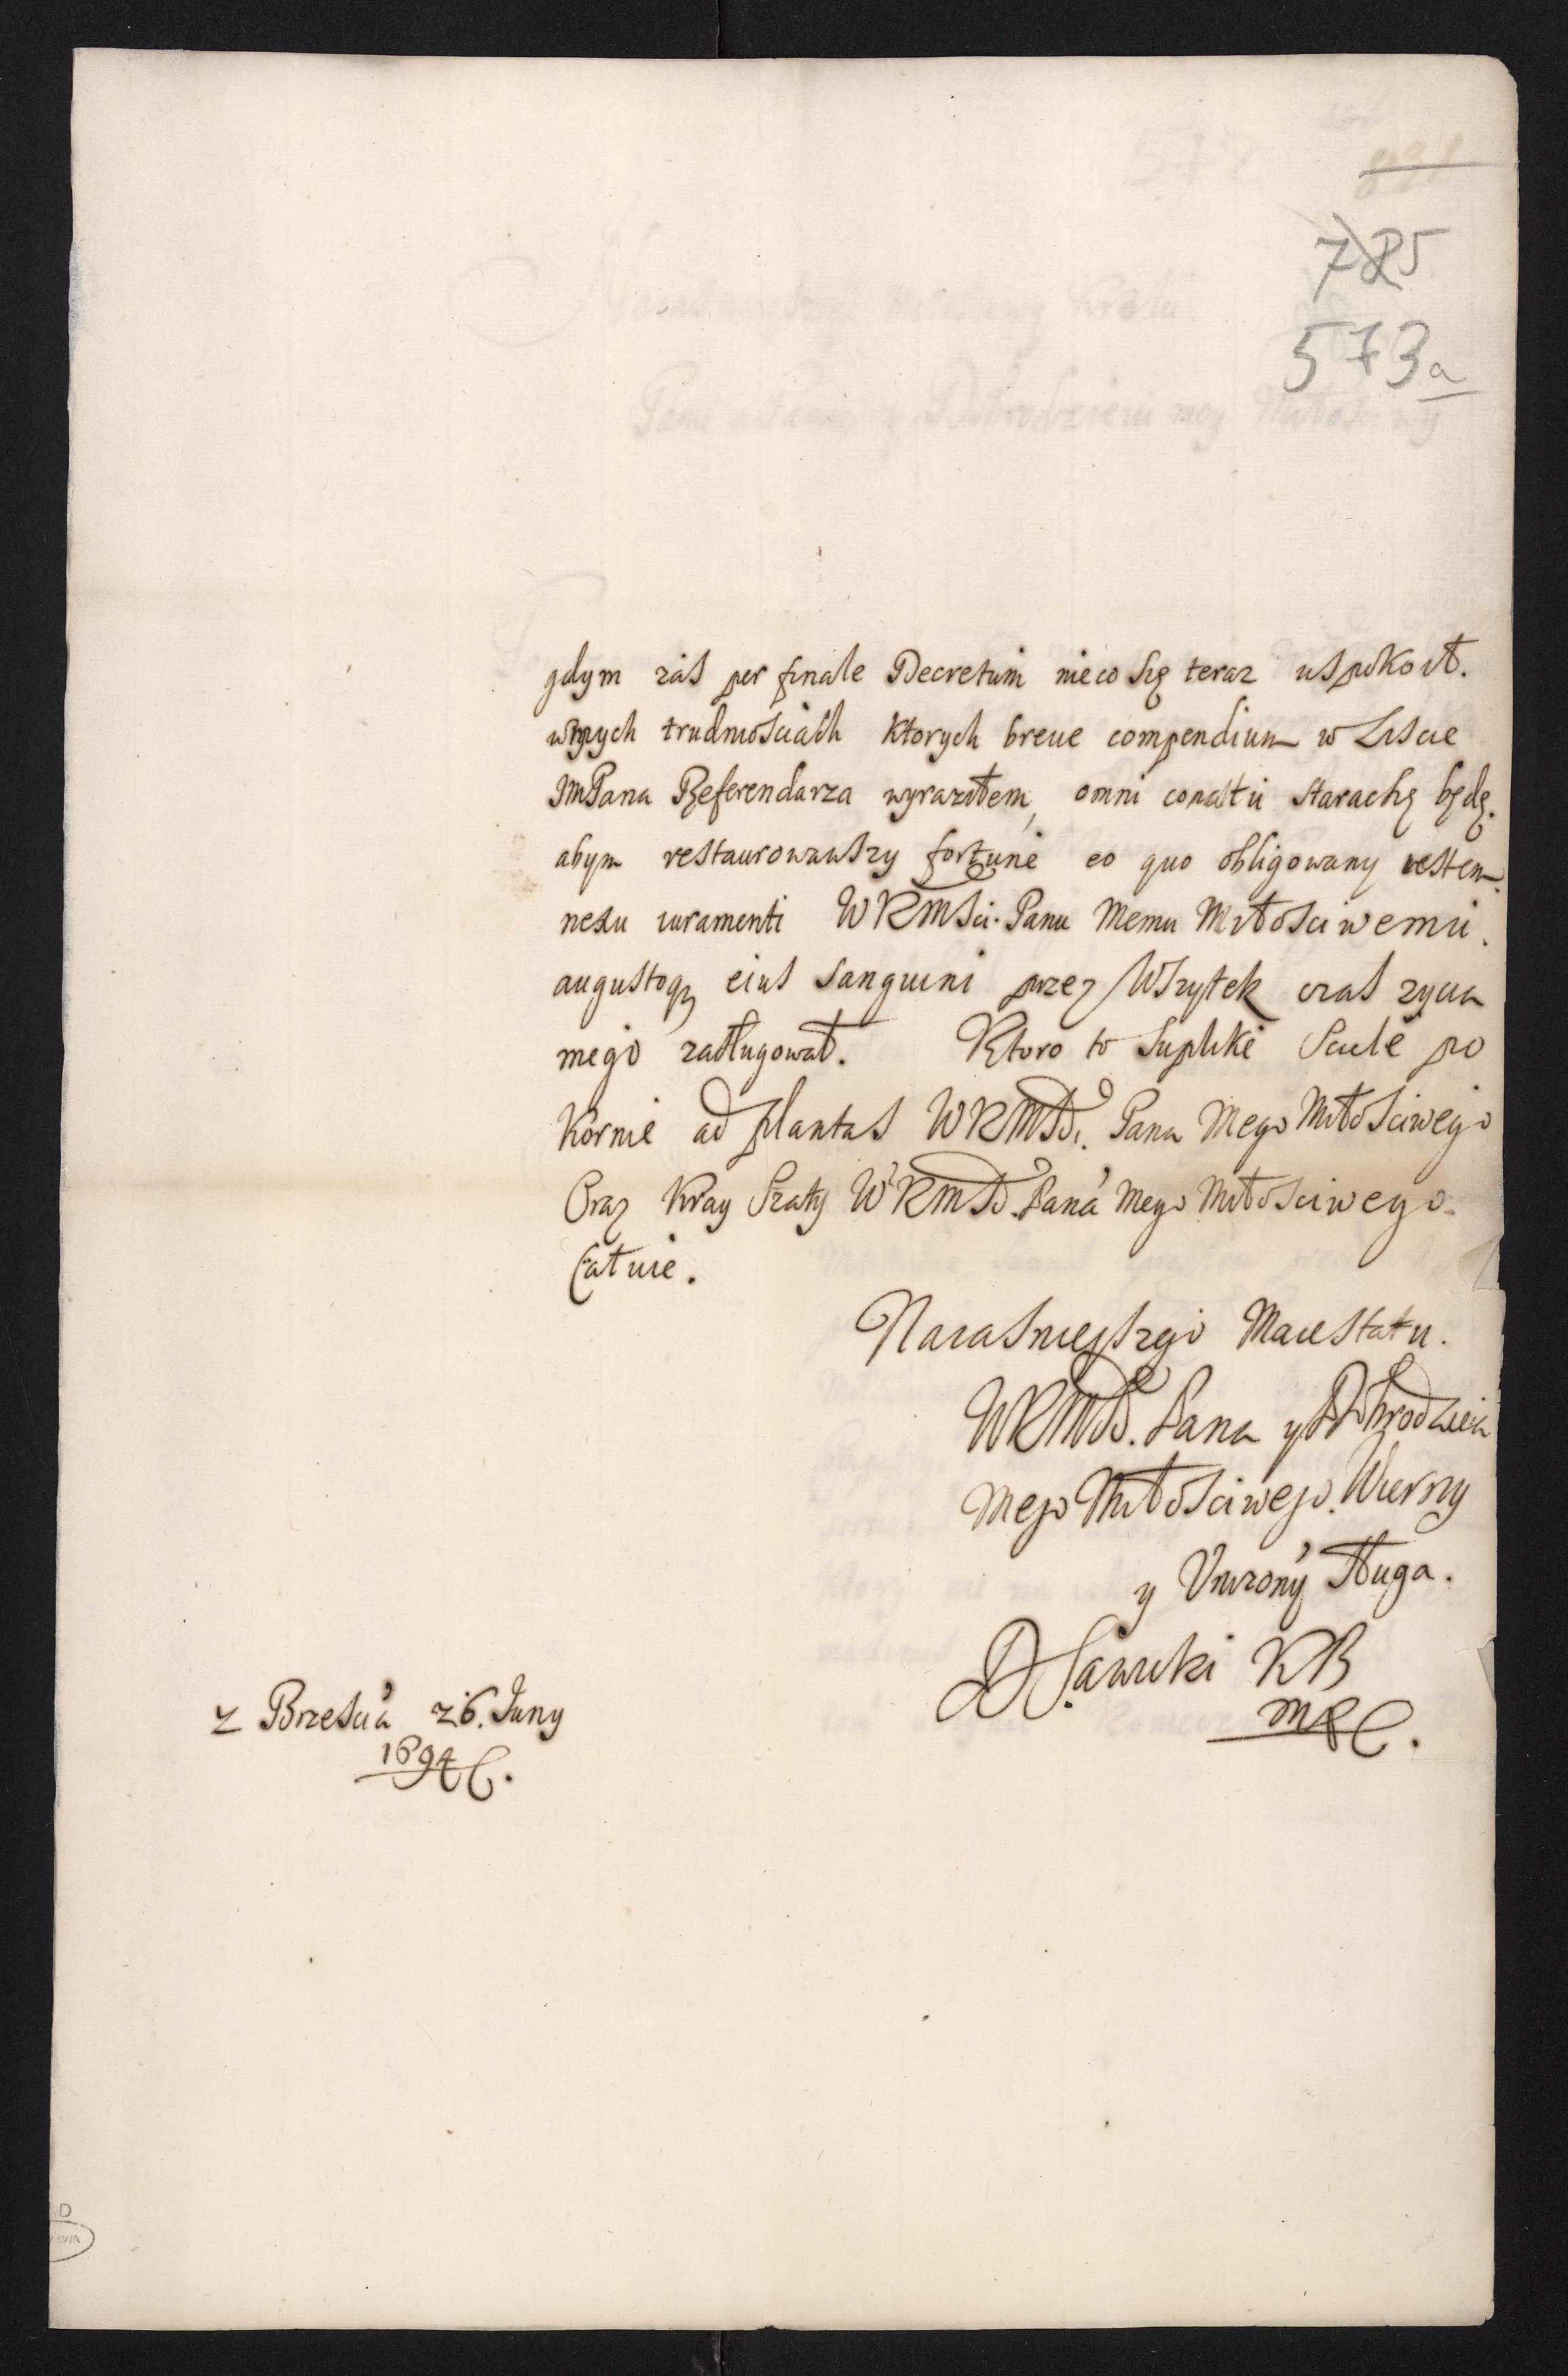 785
573a
gdym zas per finale Decretum nieco się teraz uspokoił.
w mych trudnosciach ktorych breue compendium w Liscie
JmPana Referendarza wyraziłem, omni conatu starac się będę.
abym restaurowawszy fortunę eo quo obligowany iestem
nexu iuramenti WKMsci. Panu Memu Miłosciwemu.
augustoq, eius sanguini przez Wszytek czas zycia
mego zasługował. Ktoro to suplikę sciele po
kornie ad plantas WKMsci. Pana Mego Miłosciwego
Oraz kray szaty WKMsci. Pana Mego Miłosciwego
Całuie.
Naiasnieyszego Maiestatu.
WKMsci. Pana y Dobrodzieia
Mego Miłosciwego. Wierny
y Unizony sługa.
Sawicki KB
mp.
z Brzescia 26. Juny
1694